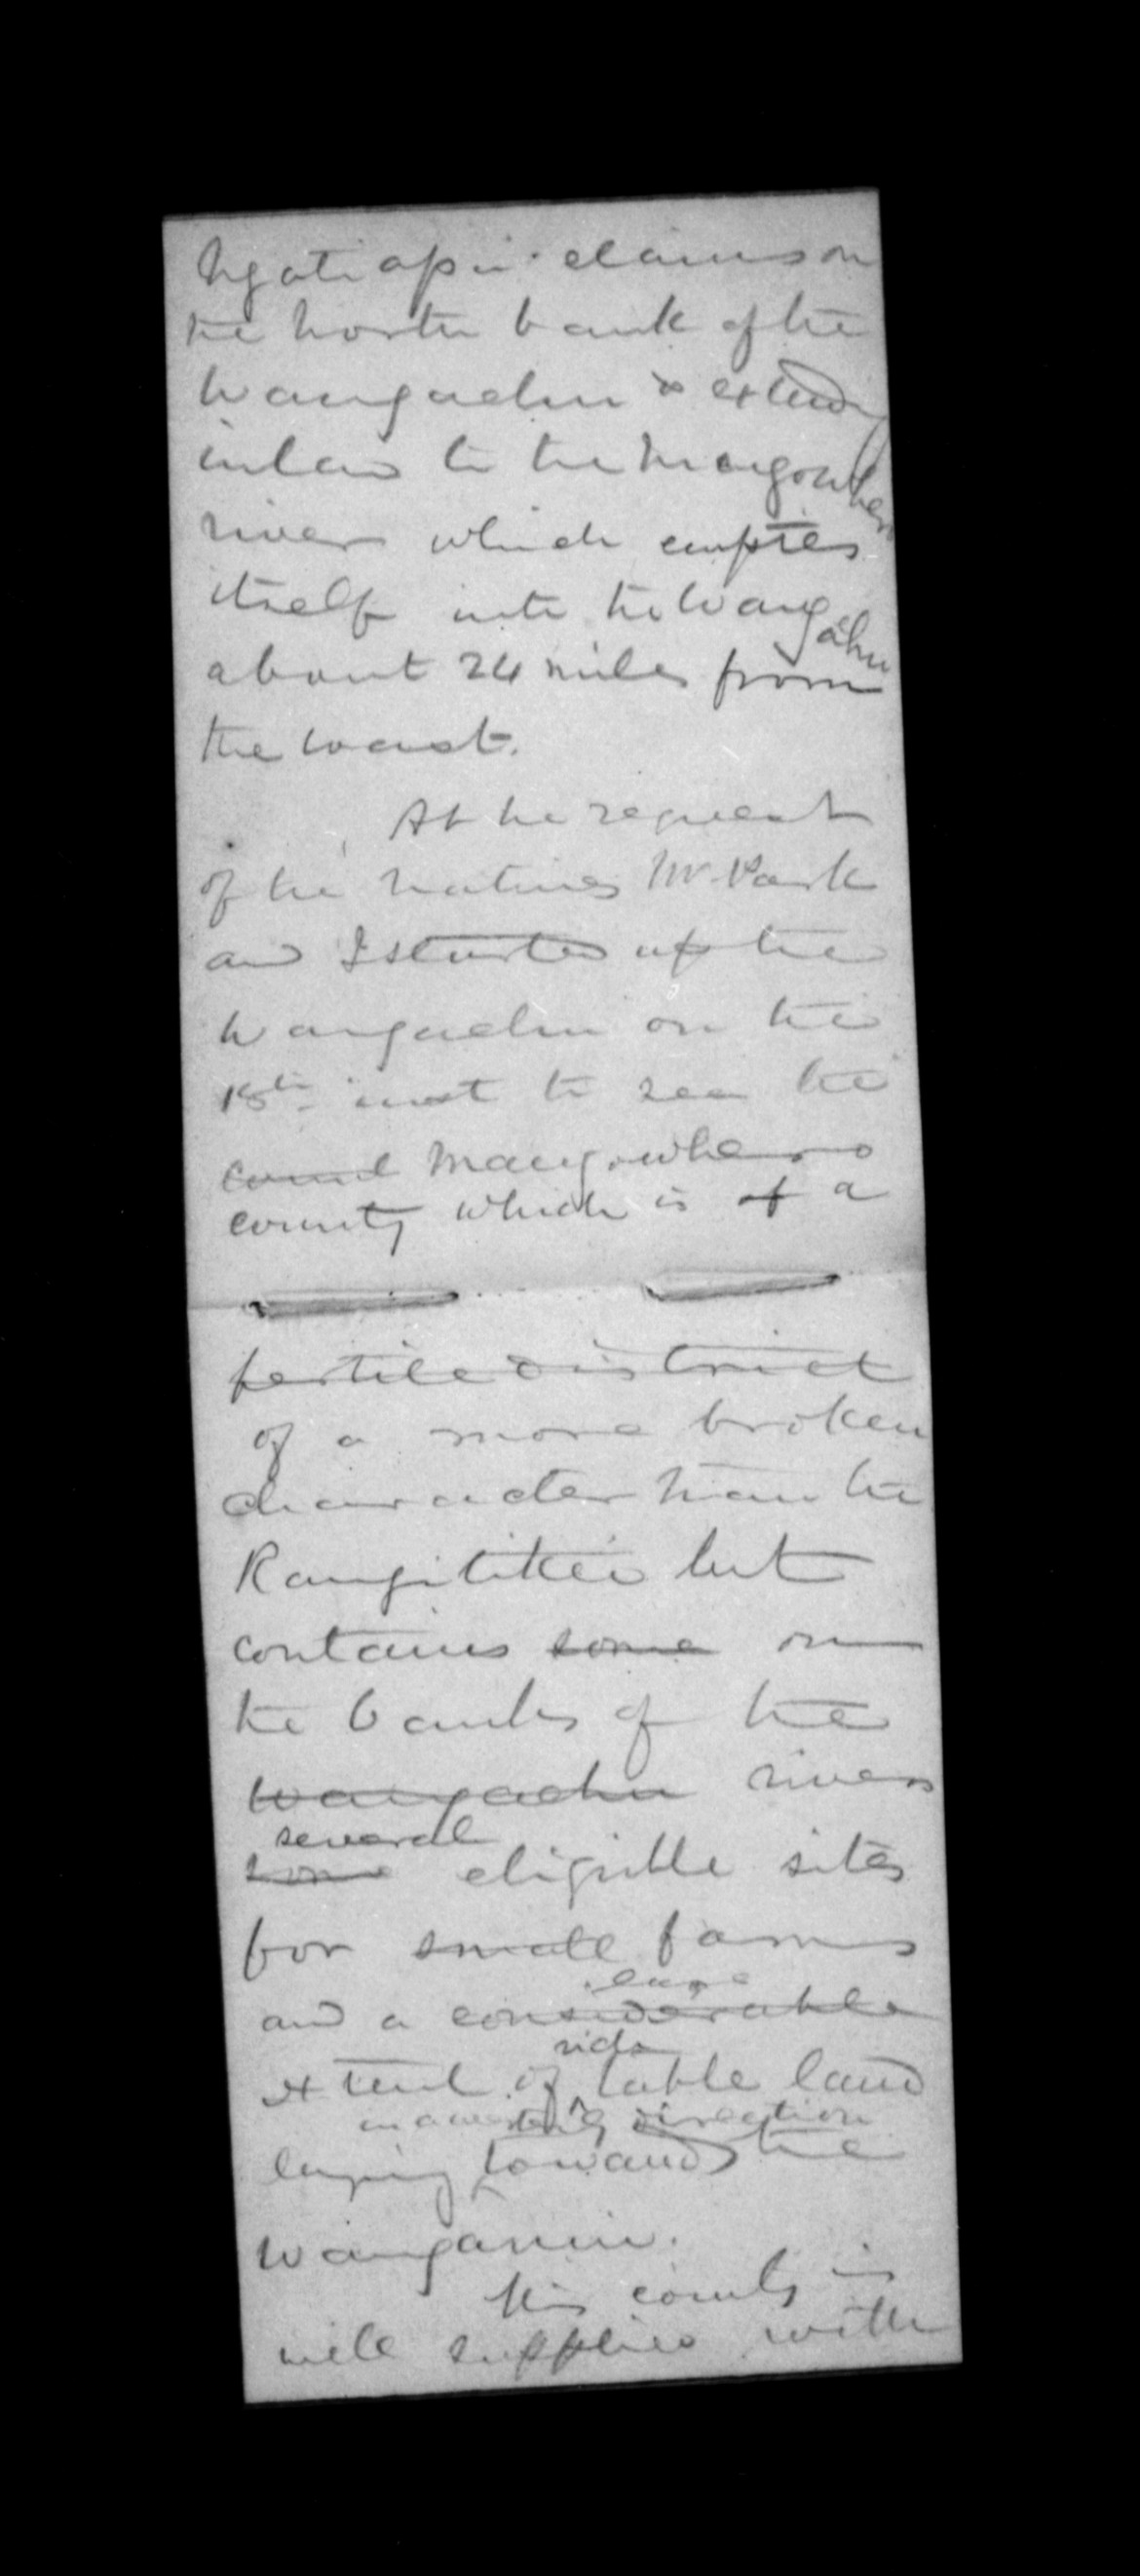 Ngatiapu claims on
the North bank of the
Wangaehu & extending
inland to the Mangowhero
river which empties
itself into the Wangaehu
about 24 miles from
the coast.
At the request
of the Natives Mr. Park
and I started up the
Wangaehu on the
18th inst to see the
Mangowhero
country which is of a
fertile district
of a more broken
character than the
Rangitikei but
contains some on
the banks of the
Wangaehu rivers
several
some eligible sites
for small farms
large
and a considerable
extent of table land
in a westerly direction
laying towards the
Wanganui.
This country is
well supplied with